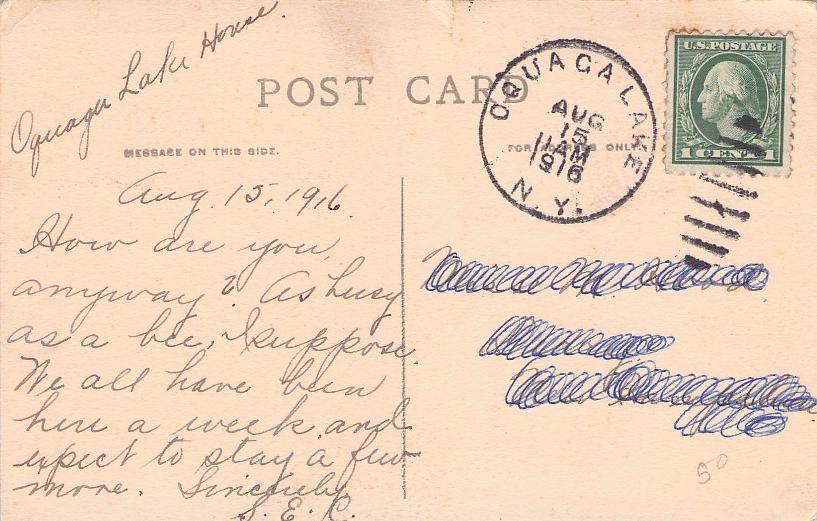 Oquaga Lake House.
POST CARD
MESSAGE ON THIS SIDE.
FOR ADDRESS ONLY.
OQUAGA LAKE
AUG
15
11 AM
1916
N.Y.
U.S. POSTAGE
1 CENT 1
Aug. 15, 1916.
How are you,
anyway? As busy
as a bee, I suppose.
We all have been
here a week and
expect to stay a few
more. Sincerely,
S. E. C.
50